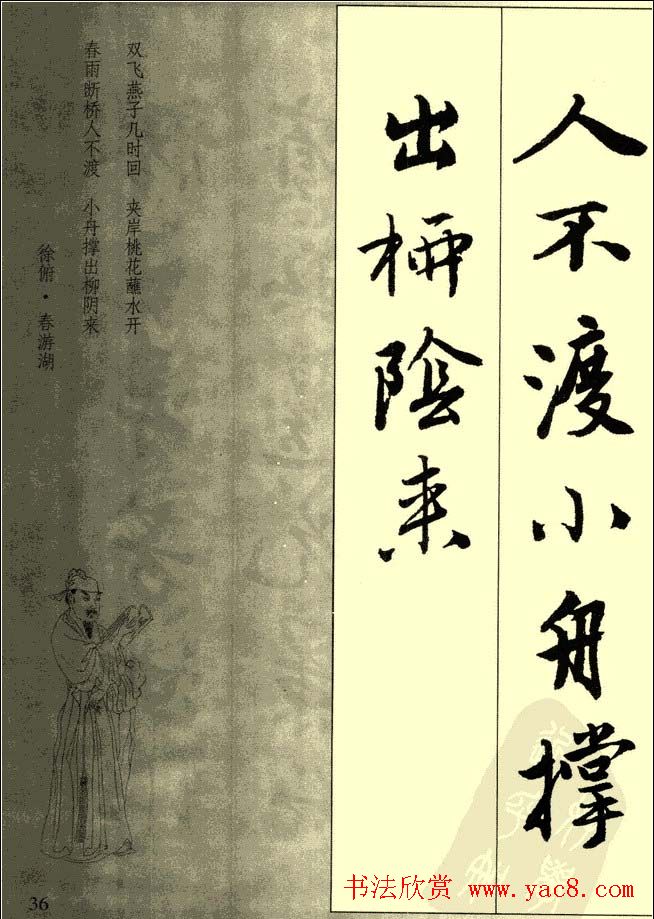 人不渡小舟撑
出柳陰来
双飞燕子几时回 夹岸桃花蘸水开
春雨断桥人不渡 小舟撑出柳阴来
徐俯·春游湖
36
书法欣赏 www.yac8.com